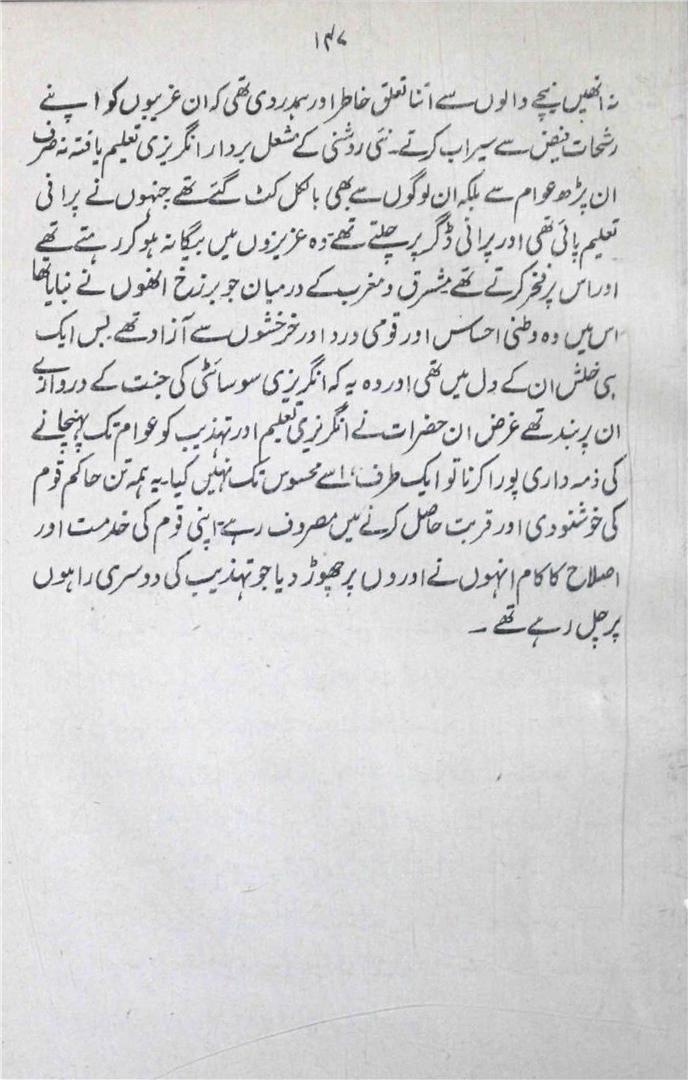 ۱۴۷
نہ انھیں نیچے والوں سے اتنا تعلق خاطر اور ہمدردی تھی کہ ان غریبوں کو اپنے
رشحات فیض سے سیراب کرتے۔ نئی روشنی کے مشعل بردار انگریزی تعلیم یافتہ نہ صرف
ان پڑھ عوام سے بلکہ ان لوگوں سے بھی بالکل کٹ گئے تھے جنہوں نے پرانی
تعلیم پائی تھی اور پرانی ڈگر پر چلتے تھے وہ عزیزوں میں بیگانہ ہو کر رہتے تھے
اور اس پر فخر کرتے تھے مشرق و مغرب کے درمیان جو برزخ انھوں نے بنایا تھا
اس میں وہ وطنی احساس اور قومی درد اور خرخشوں سے آزاد تھے بس ایک
ہی خلش ان کے دل میں تھی اور وہ یہ کہ انگریزی سوسائٹی کی جنت کے دروازے
ان پر بند تھے غرض ان حضرات نے انگریزی تعلیم اور تہذیب کو عوام تک پہنچانے
کی ذمہ داری پورا کرنا تو ایک طرف، اسے محسوس تک نہیں کیا۔ یہ ہمہ تن حاکم قوم
کی خوشنودی اور قربت حاصل کرنے میں مصروف رہے۔ اپنی قوم کی خدمت اور
اصلاح کا کام انہوں نے اوروں پر چھوڑ دیا جو تہذیب کی دوسری راہوں
پر چل رہے تھے ۔